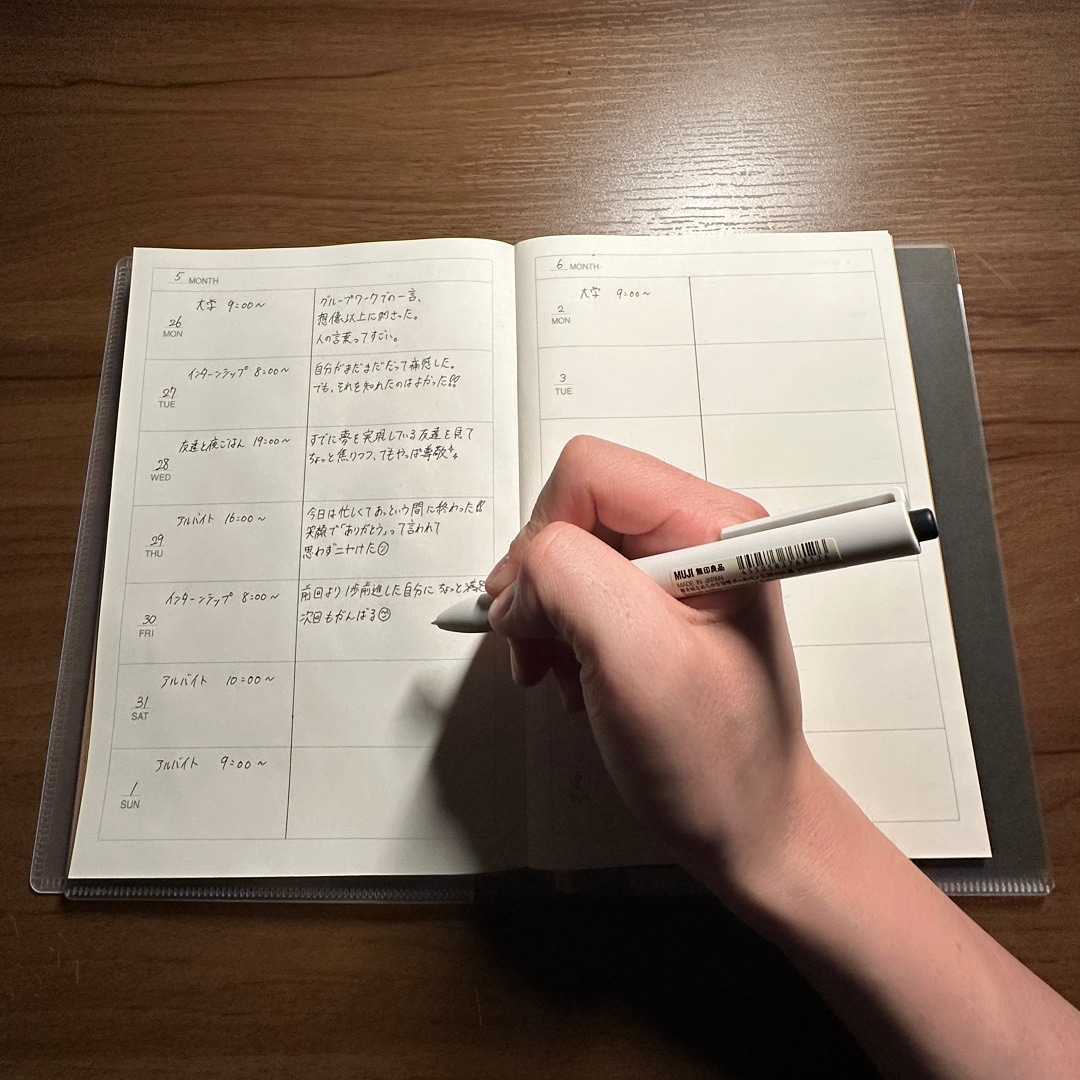 5 MONTH
26
MON
大学 9:00~
グループワークでの一言、
想像以上に刺さった。
人の言葉ってすごい。
27
TUE
インターンシップ 8:00~
自分がまだまだだって痛感した。
でも、それを知れたのはよかった!!
28
WED
友達と夜ごはん 19:00~
すでに夢を実現している友達を見て
ちょっと焦りつつ、でもやっぱ尊敬
29
THU
アルバイト 16:00~
今日は忙しくてあっという間に終わった!!
笑顔で「ありがとう」って言われて
思わずニヤけた
30
FRI
インターンシップ 8:00~
前回より1歩前進した自分に ちょっと満足
次回もがんばる
31
SAT
アルバイト 10:00~
1
SUN
アルバイト 9:00~
6 MONTH
2
MON
大学 9:00~
3
TUE
MUJI 無印良品
MADE IN JAPAN